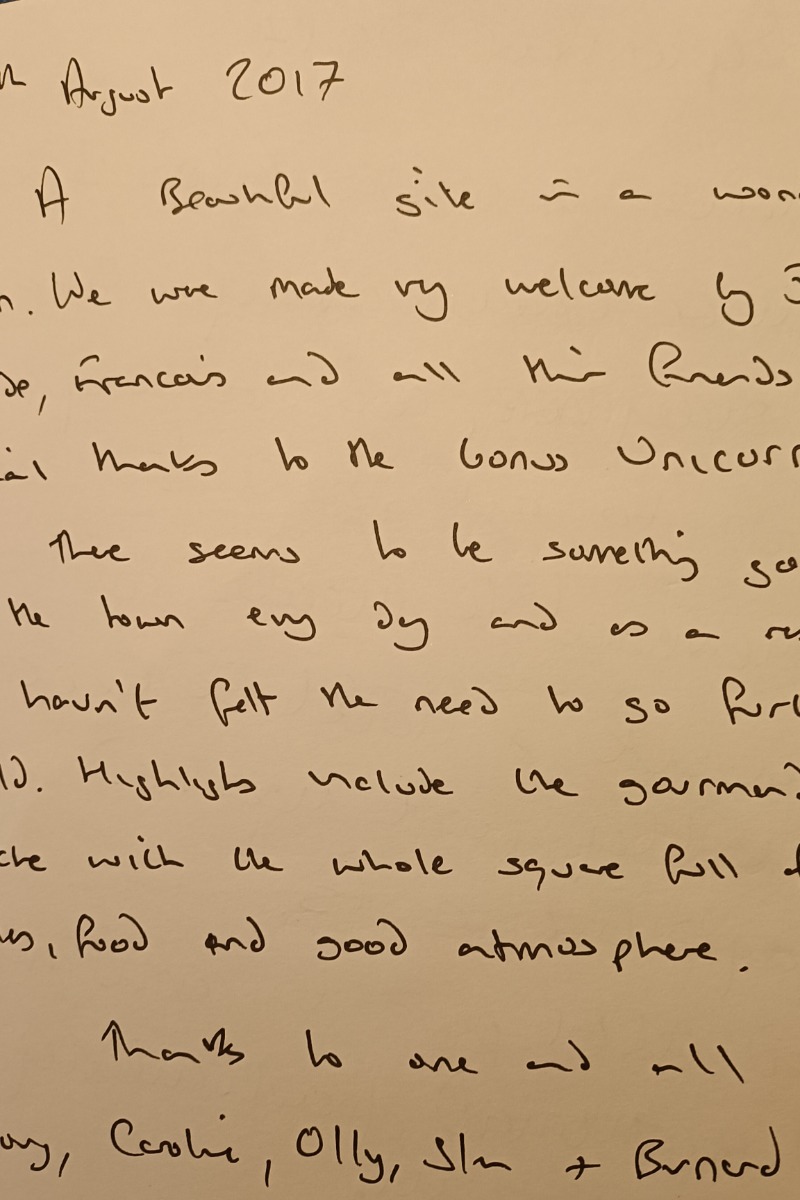 August 2017
A Beautiful site in a
. We were made very welcome by
, Francois and all their friends
thanks to the bonus Unicorn
There seems to be something
the town every day and as a
havn't felt the need to go
. Highlights include the
with the whole square full
, food and good atmosphere.
Thanks to one and all
, Caroline, Olly, + Bernard